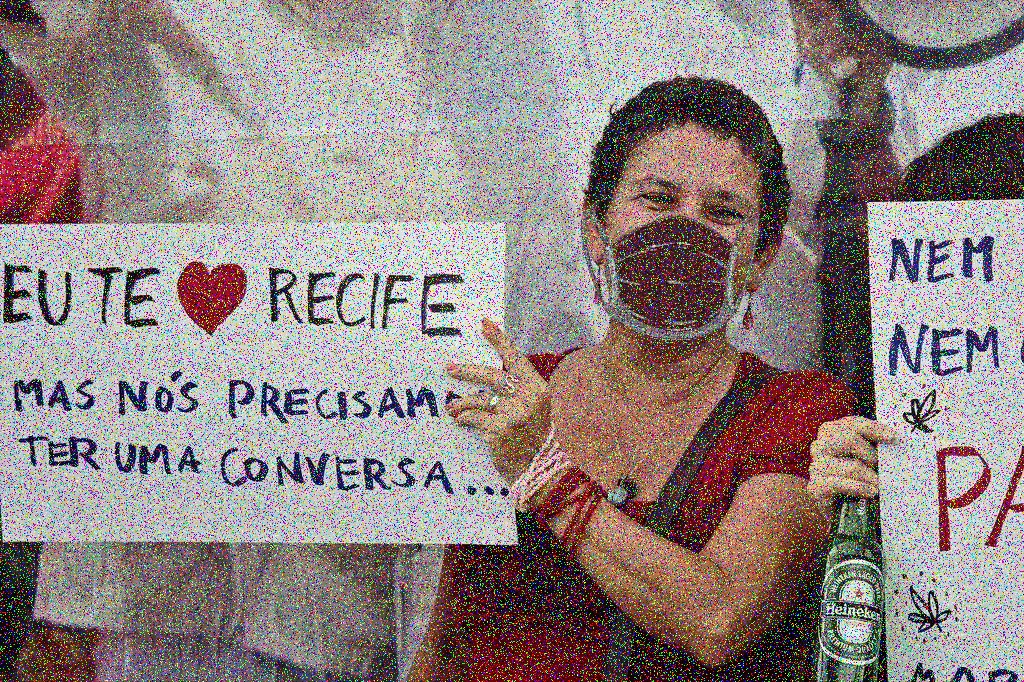 EU TE ❤ RECIFE
MAS NÓS PRECISAM
TER UMA CONVERSA...
NEM
NEM
PA
Heineken